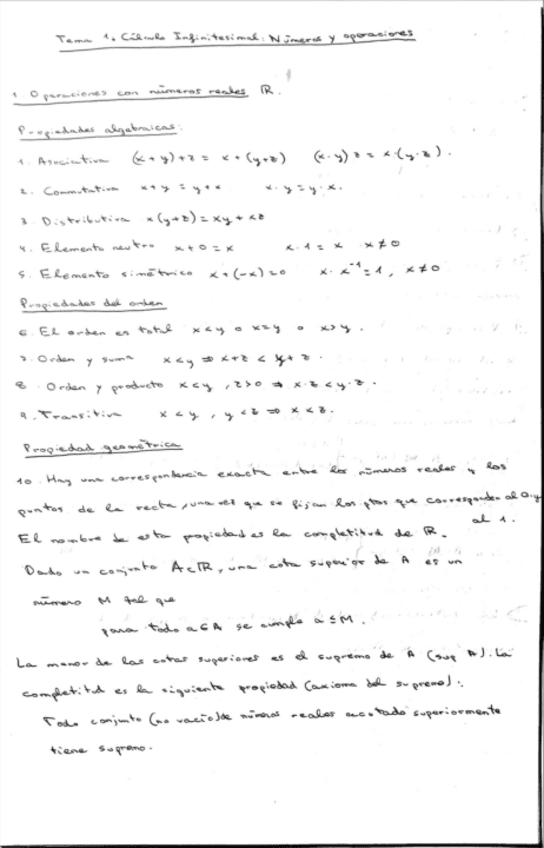 Tema 1. Cálculo Infinitesimal: Números y operaciones
1. Operaciones con números reales ℝ.
Propiedades algebraicas:
1. Asociativa (x+y)+z = x+(y+z) (x·y)z = x·(y·z).
2. Conmutativa x+y = y+x x·y = y·x.
3. Distributiva x(y+z) = xy + xz
4. Elemento neutro x+0=x x·1=x x≠0
5. Elemento simétrico x+(-x)=0 x·x⁻¹=1, x≠0
Propiedades del orden
6. El orden es total x<y o x=y o x>y.
7. Orden y suma x<y ⇒ x+z < y+z.
8. Orden y producto x<y, z>0 ⇒ x·z<y·z.
9. Transitiva x<y, y<z ⇒ x<z.
Propiedad geométrica
10. Hay una correspondencia exacta entre los números reales y los
puntos de la recta, una vez que se fijan los ptos que corresponden al 0 y
al 1.
El nombre de esta propiedad es la completitud de ℝ.
Dado un conjunto A⊂ℝ, una cota superior de A es un
número M tal que
para todo a∈A se cumple a≤M.
La menor de las cotas superiores es el supremo de A (sup A). La
completitud es la siguiente propiedad (axioma del supremo):
Todo conjunto (no vacío) de números reales acotado superiormente
tiene supremo.